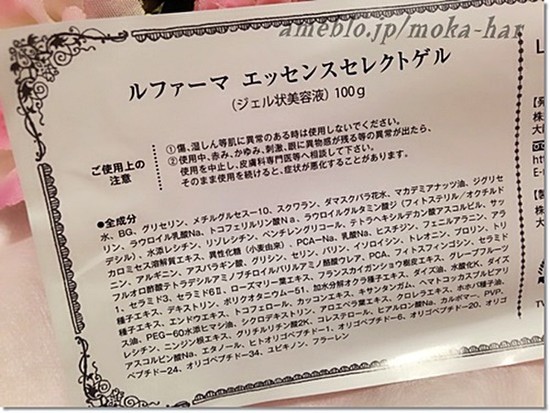 ameblo.jp/moka-har
ルファーマ エッセンスセレクトゲル
(ジェル状美容液) 100g
ご使用上の
注意
①傷、湿しん等肌に異常のある時は使用しないでください。
②使用中、赤み、かゆみ、刺激、眼に異物感が残る等の異常が出たら、
使用を中止し、皮膚科専門医等へ相談して下さい。
そのまま使用を続けると、症状が悪化することがあります。
●全成分
水、BG、グリセリン、メチルグルセス-10、スクワラン、ダマスクバラ花水、マカデミアナッツ油、ジグリセ
リン、ラウロイル乳酸Na、トコフェリルリン酸Na、ラウロイルグルタミン酸ジ(フィトステリル/オクチルド
デシル)、水添レシチン、リゾレシチン、ペンチレングリコール、テトラヘキシルデカン酸アスコルビル、サッ
カロミセス溶解質エキス、異性化糖(小麦由来)、PCA-Na、乳酸Na、ヒスチジン、フェニルアラニン、アラ
ニン、アルギニン、アスパラギン酸、グリシン、セリン、バリン、イソロイシン、トレオニン、プロリン、トリ
1、セラミド3、セラミド6Ⅱ、ローズマリー葉エキス、フランスカイガンショウ樹皮エキス、グレープフルーツ
種子エキス、デキストリン、ポリクオタニウム-51、加水分解オクラ種子エキス、ダイズ油、水酸化K、ダイズ
種子エキス、エンドウエキス、トコフェロール、カッコンエキス、キサンタンガム、
ス油、PEG-60水添ヒマシ油、シクロデキストリン、アロエベラ葉エキス、クロレラエキス、ホホバ種子油、
レシチン、ニンジン根エキス、グリチルリチン酸2K、コレステロール、ヒアルロン酸Na、カルボマー、PVP、
アスコルビン酸Na、エタノール、ヒトオリゴペプチド-1、オリゴペプチド-6、オリゴペプチド-20、オリゴ
ペプチド-24、オリゴペプチド-34、ユビキノン、フラーレン